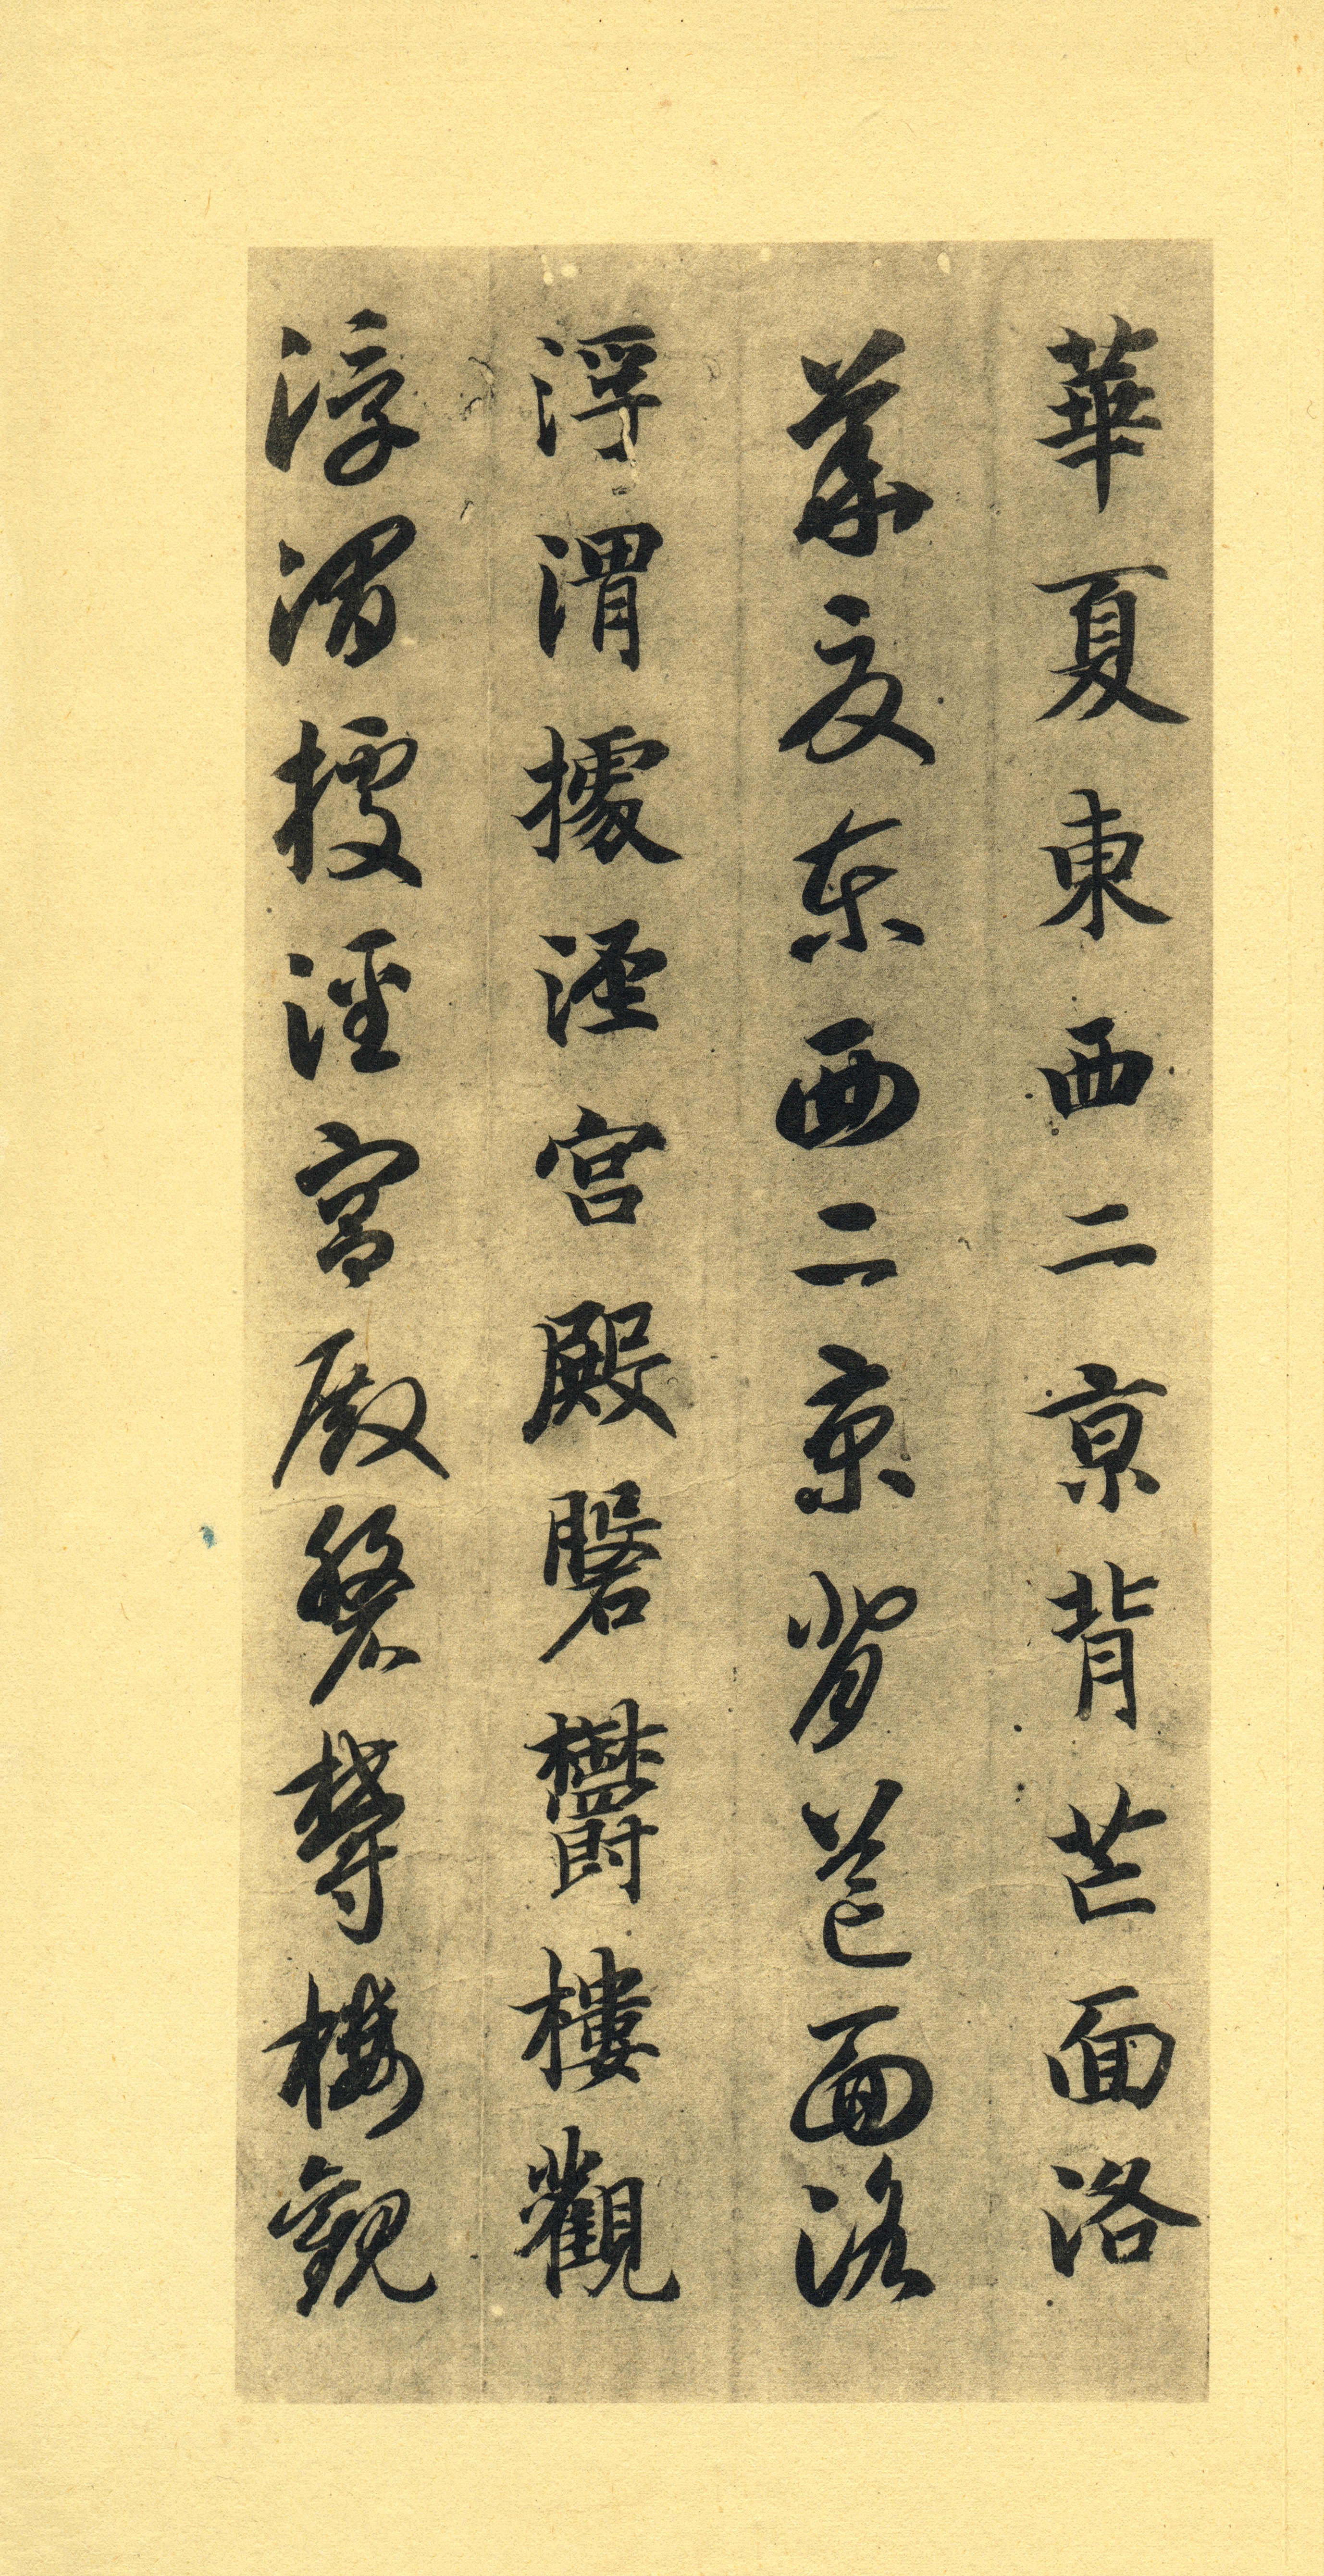 華夏東西二京背芒面洛
華夏東西二京背芒面洛
浮渭據涇宮殿磐欝樓觀
浮渭據涇宮殿磐欝樓觀